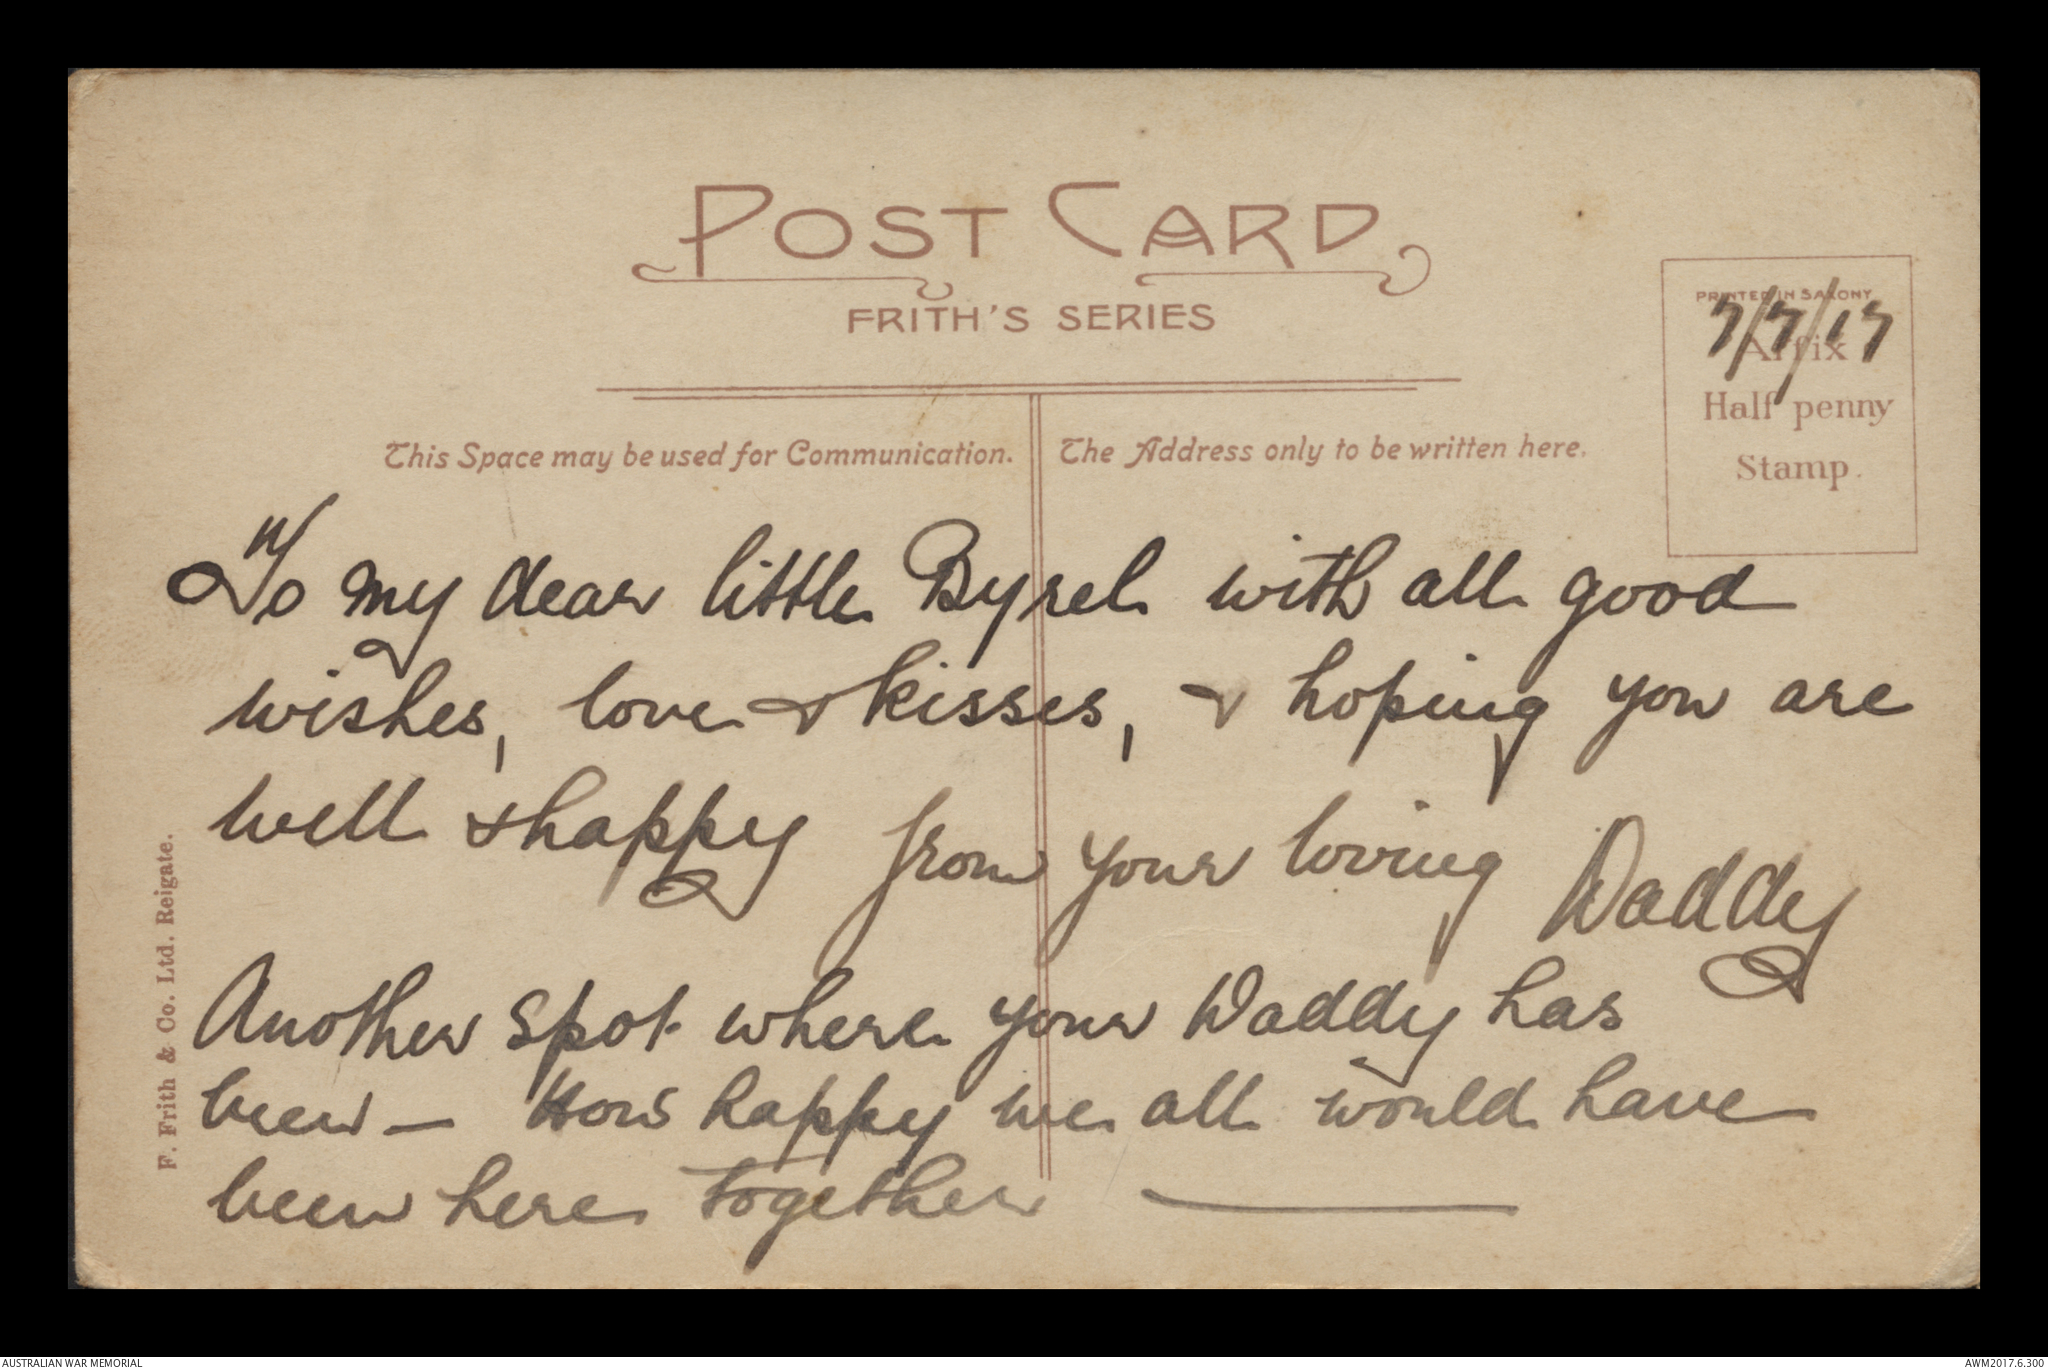 POST CARD
FRITH'S SERIES
PRINTED IN SAXONY
7/7/17
Affix
Half penny
Stamp.
This Space may be used for Communication.
The Address only to be written here.
To my dear little Byrel with all good
wishes, love & kisses, & hoping you are
well & happy from your loving Daddy
Another spot where your Daddy has
been — How happy we all would have
been here together —
F. Frith & Co. Ltd. Reigate.
AUSTRALIAN WAR MEMORIAL
AWM2017.6.300